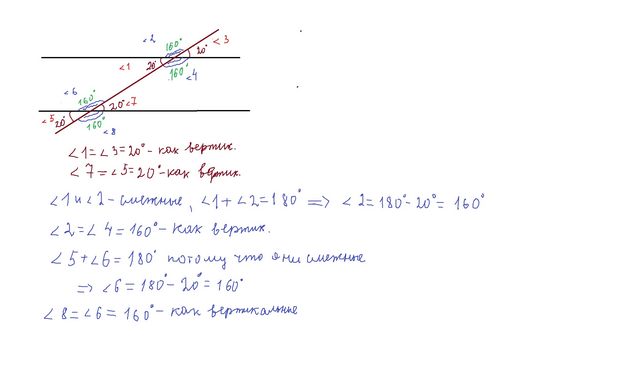 ∠2 160° 20° ∠3
∠1 20° 160° ∠4
∠6 160° 20° ∠7
∠5 20° 160° ∠8
∠1 = ∠3 = 20° - как вертик.
∠7 = ∠5 = 20° - как вертик.
∠1 и ∠2 - смежные, ∠1 + ∠2 = 180° => ∠2 = 180° - 20° = 160°
∠2 = ∠4 = 160° - как вертик.
∠5 + ∠6 = 180° потому что они смежные
=> ∠6 = 180° - 20° = 160°
∠8 = ∠6 = 160° - как вертикальные